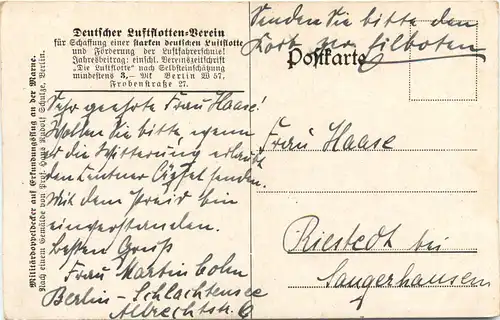 Deutscher Luftflotten-Verein
für Schaffung einer starken deutschen Luftflotte
und Förderung der Luftfahrerschule!
Jahresbeitrag: einschl. Vereinszeitschrift
„Die Luftflotte“ nach Selbsteinschätzung
mindestens 3,— Mk Berlin W 57,
Frobenstraße 27.
Senden Sie bitte den
Korb per Eilboten
Postkarte
Militärdoppeldecker auf Erkundungsflug an der Marne.
Nach einem Gemälde von Prof. Hans Rudolf Schulze, Berlin.
Sehr geehrte Frau Haase!
Wollen Sie bitte, wenn
es die Witterung erlaubt
den Zentner Äpfel senden.
Mit dem Preis bin
einverstanden.
Besten Gruß
Frau Martin Cohn
Berlin - Schlachtensee
Albrechtstr. 6
Frau Haase
Riestedt bei
Sangerhausen